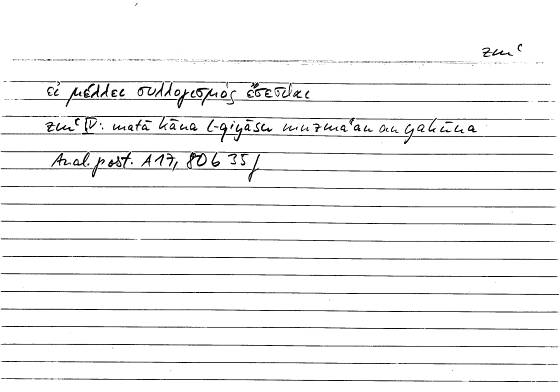 zmʿ
εἰ μέλλει συλλογισμὸς ἔσεσθαι
zmʿ IV: matā kāna l-qiyāsu muzmaʿan an yakūna
Anal. post. A 17, 80 b 35 f